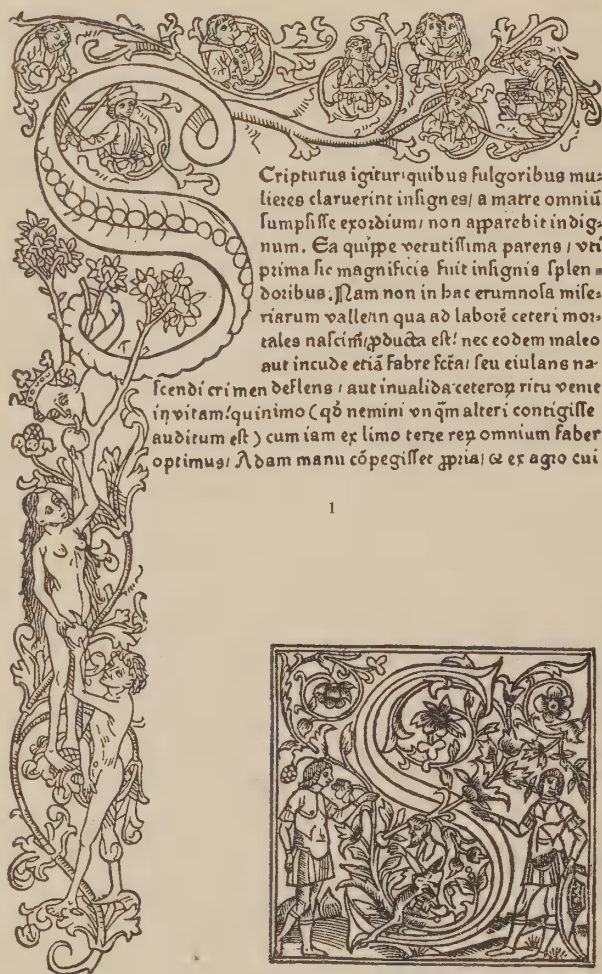 Scripturus igitur quibus fulgoribus mu⸗
lieres claruerint insignes/ a matre omniū
sumpsisse exordium/ non apparebit indig⸗
num. Ea quippe vetutissima parens / vti
prima sic magnificis fuit insignis splen⸗
doribus. Nam non in hac erumnosa mise⸗
riarum valle/in qua ad laborē ceteri mor⸗
tales nascim̄/ꝓducta est! nec eodem maleo
aut incude etiā fabre fc̄ta/ seu eiulans na⸗
scendi crimen deflens / aut inualida ceteroꝝ ritu venit
in vitam! quinimo (qđ nemini vnq̄m alteri contigisse
auditum est) cum iam ex limo terre reꝝ omnium faber
optimus/ Adam manu cōpegisset ꝓpria/ & ex agro cui
1
S